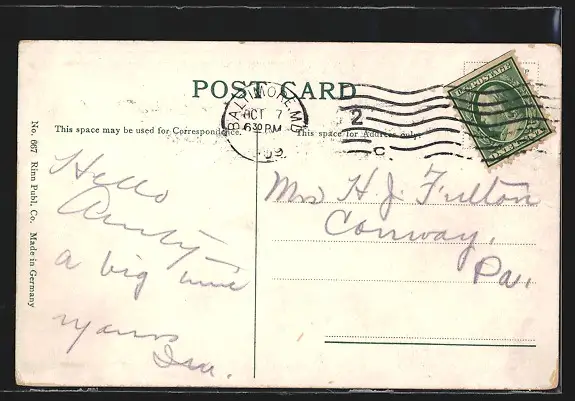 POST CARD
BALTIMORE, MD.
OCT 7
630 PM
09
2
C
U.S. POSTAGE
This space may be used for Correspondence.
This space for Address only.
No. 667 Rinn Publ. Co. Made in Germany
Hello
Aunty
a big time
yours
Mrs H J Fulton
Conway,
Pa.